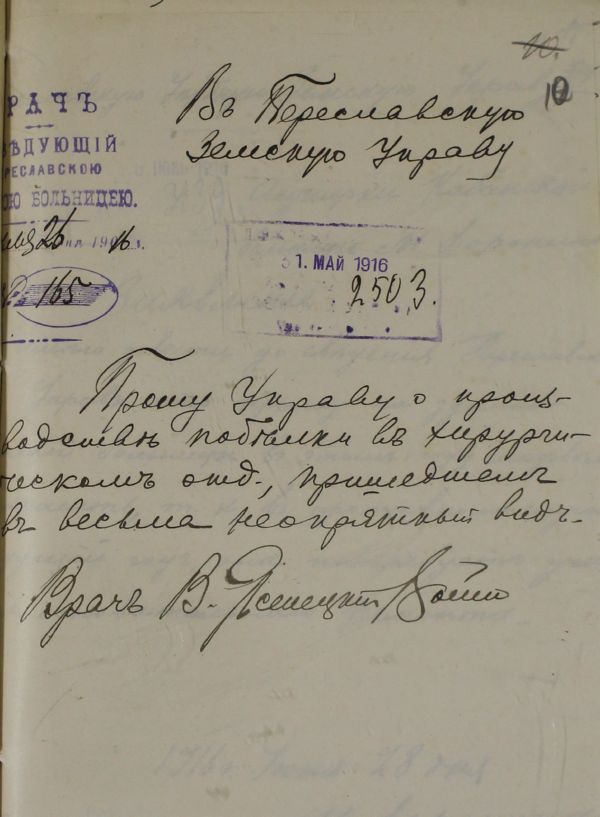 10.
10
Въ Переславскую
Земскую Управу
РАЧЪ
ѢДУЮЩІЙ
РЕСЛАВСКОЮ
ОЮ БОЛЬНИЦЕЮ.
26 16 г.
№ 165
1. МАЙ 1916
2503.
Прошу Управу о произ-
водствѣ побѣлки въ хирурги-
ческомъ отд., пришедшемъ
въ весьма неопрятный видъ.
Врачъ В. Ясенецкій Войно